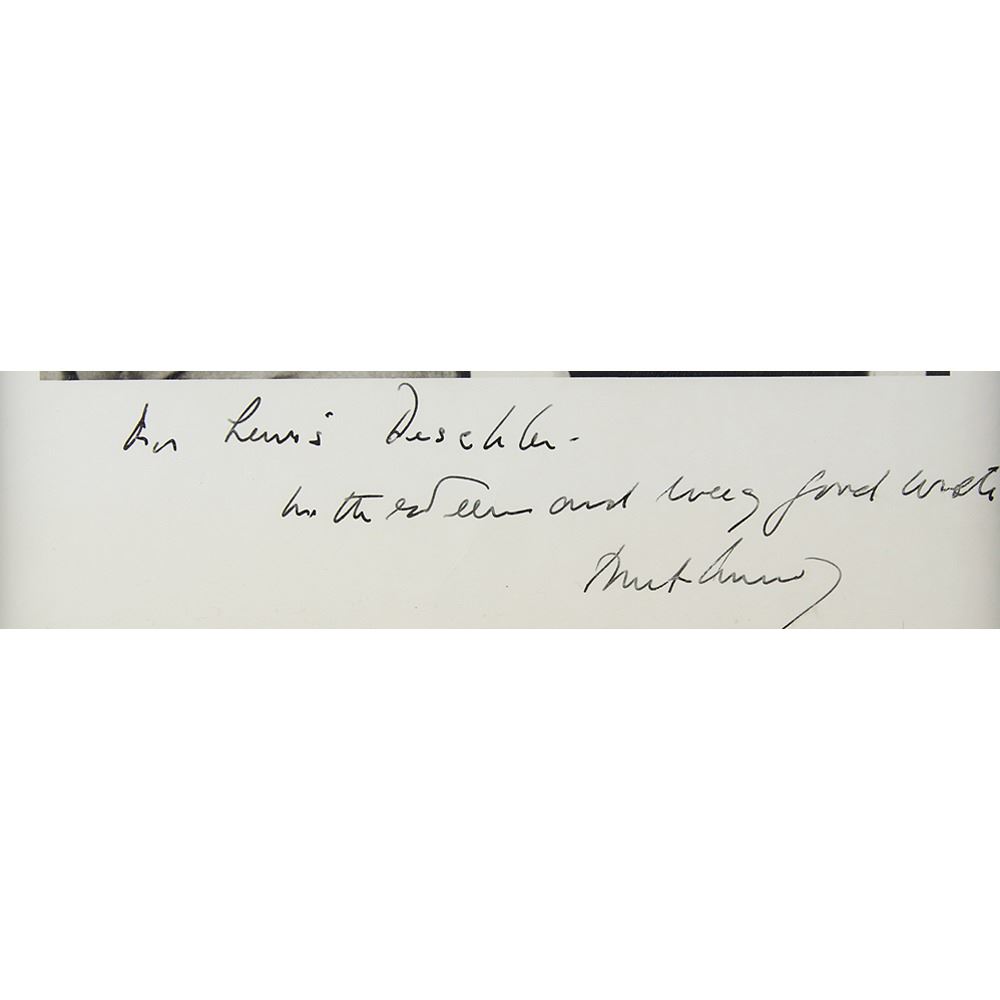 For Lewis Deschler-
with esteem and very good wishe